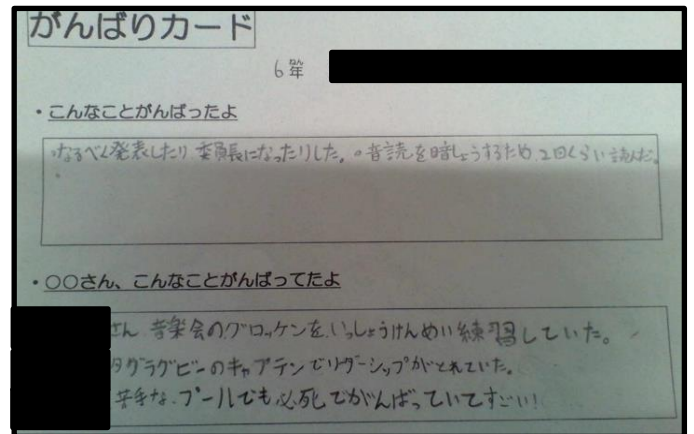 がんばりカード
6年
・こんなことがんばったよ
・なるべく発表したり委員長になったりした。・音読を暗しょうするため、2回くらい読んだ。
・○○さん、こんなことがんばってたよ
さん 音楽会のグロッケンを、いっしょうけんめい練習していた。
タグラグビーのキャプテンでリダーシップがとれていた。
苦手な、プールでも必死でがんばっていてすごい!